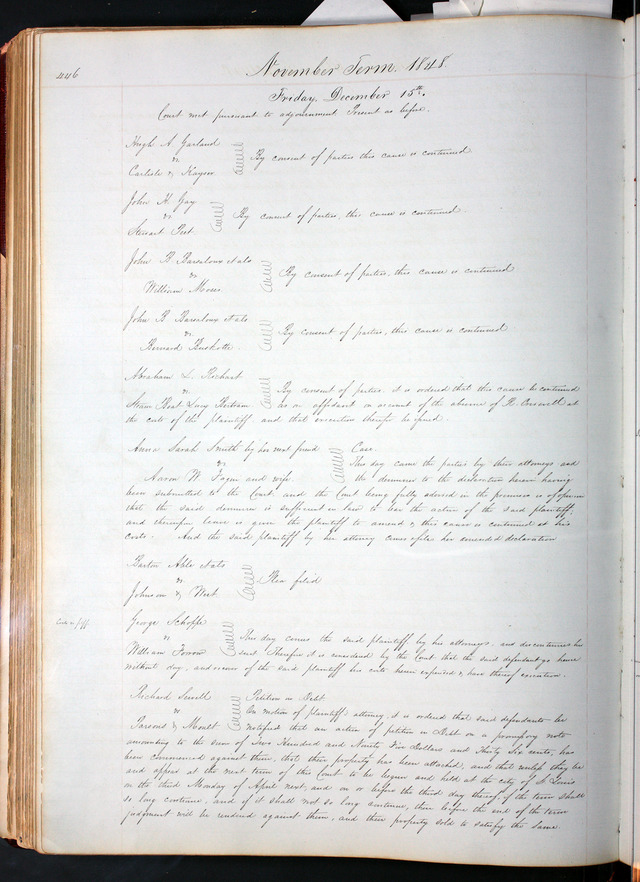 446
November Term. 1848.
Friday, December 15th.
Court met pursuant to adjournment Present as before.
Hugh A. Garland
vs
Carlisle & Kayser
By consent of parties this cause is continued
John H. Gay
vs
Stewart
By consent of parties, this cause is continued
John B Barsaloux et als
vs
William Moses
By consent of parties, this cause is continued
John B Barsaloux et als
vs
Bernard
By consent of parties, this cause is continued
Abraham L.
vs
Steam Boat Lucy Bertram
By consent of parties. it is ordered that this cause be continued
as on affidavit on account of the absence of R. Creswell at
the costs of the plaintiff and that execution therefor be issued.
Anna Sarah Smith by her next friend
vs
Aaron W. Fagin and wife.
Case.
This day came the parties by their attorneys and
the demurrer to the declaration herein having
been submitted to the Court, and the Court being fully advised in the premises is of opinion
that the said demurrer is sufficient in law to bar the action of the said plaintiff;
and therefore leave is given the plaintiff to amend & this cause is continued at his
costs. And the said plaintiff by her attorney comes & files her amended declaration
Barton Able et als
vs
Johnson & West
Plea filed
George Schoffe
vs
William
This day comes the said plaintiff by his attorneys. and discontinues his
suit. Therefore it is considered by the Court that the said defendant go hence
without day, and recover of the said plaintiff his costs herein expended & have thereof execution.
Richard Sewell
vs
Parsons & Moult
Petition in Debt
On motion of plaintiffs attorney, it is ordered that said defendants be
notified that an action of petition in Debt on a promissory note
amounting to the sum of Two Hundred and Ninety Five Dollars and Thirty Six cents, has
been commenced against them, that their property has been attached, and that unless they be
and appear at the next term of this Court to be begun and held at the city of St Louis,
on the third Monday of April next, and on or before the third day thereof, if the term shall
so long continue, and if it shall not so long continue, then before the end of the term
judgment will be rendered against them, and their property sold to satisfy the same.